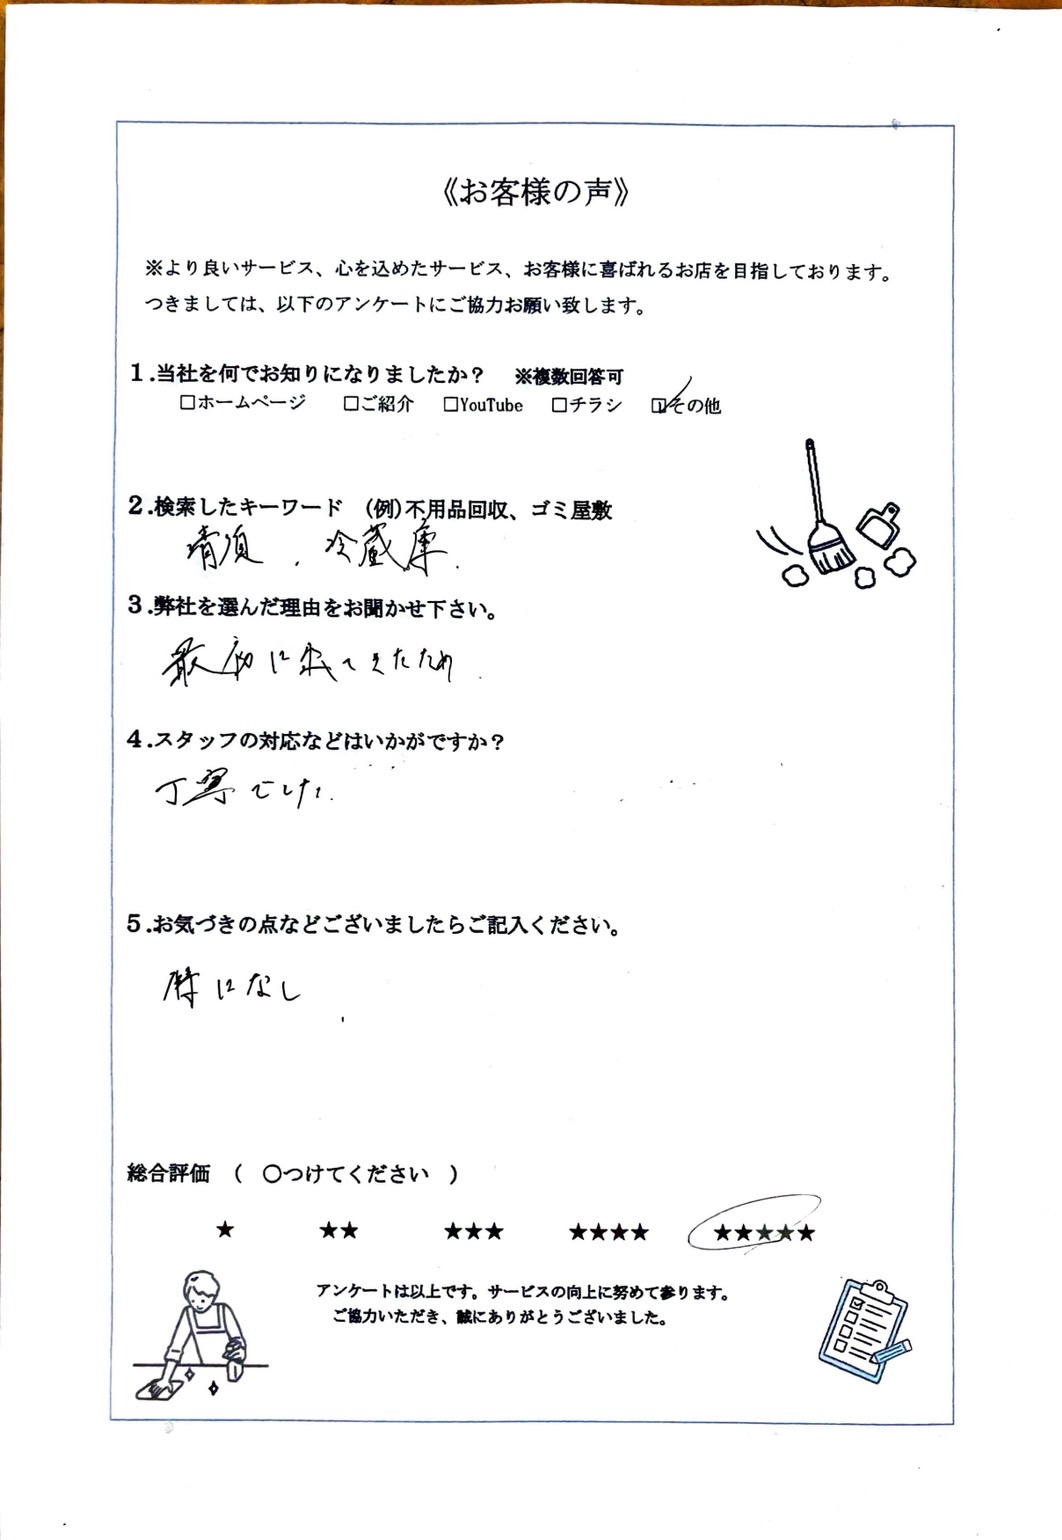 《お客様の声》
※より良いサービス、心を込めたサービス、お客様に喜ばれるお店を目指しております。
つきましては、以下のアンケートにご協力お願い致します。
1.当社を何でお知りになりましたか？ ※複数回答可
□ホームページ □ご紹介 □YouTube □チラシ ☑その他
2.検索したキーワード (例)不用品回収、ゴミ屋敷
清須、冷蔵庫.
3.弊社を選んだ理由をお聞かせ下さい。
最初に出てきたため.
4.スタッフの対応などはいかがですか？
丁寧でした.
5.お気づきの点などございましたらご記入ください。
特になし
総合評価 ( ○つけてください )
★ ★★ ★★★ ★★★★ ★★★★★
アンケートは以上です。サービスの向上に努めて参ります。
ご協力いただき、誠にありがとうございました。